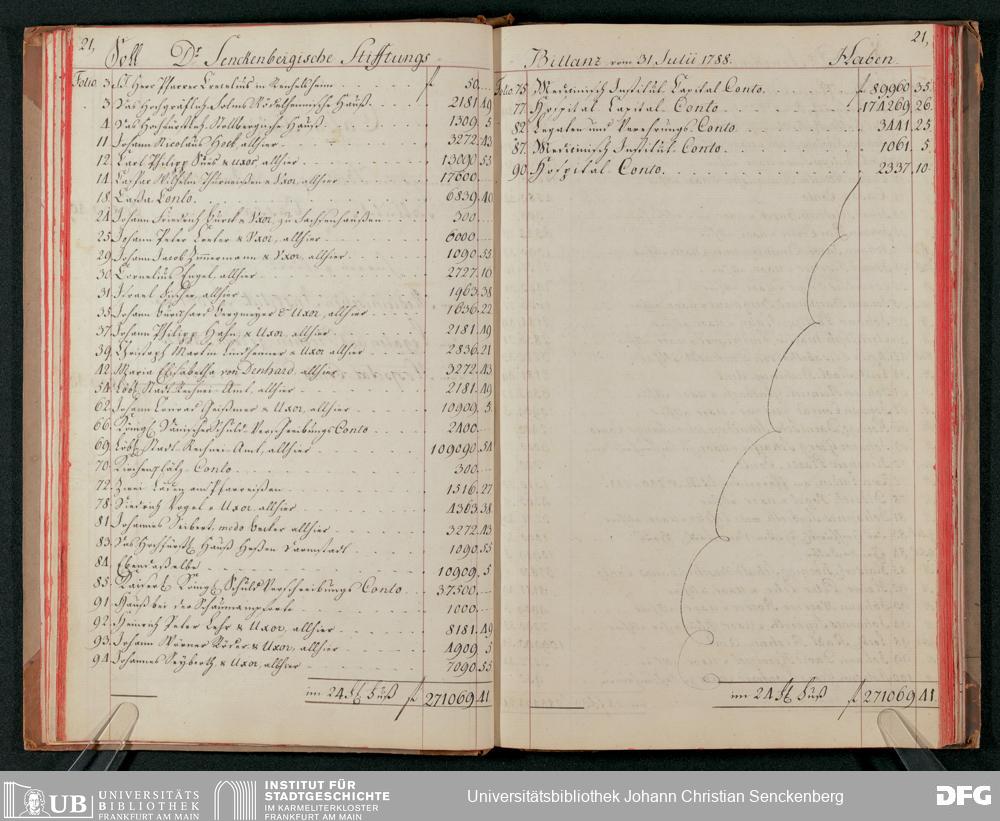 21, Soll Dr. Senckenbergische Stifftungs
Folio 3 St. Herr Pfarrer in 50
3 Das Hochgräflich Solms Rödelheimische Hauß 2181.49
4 Das Hochfürstlich Stollbergische Hauß 1309.5
11 Johann Nicolaus allhier 3272.43
12 Carl Philipp & uxor allhier 13090.55
14 Caspar Wilhelm & Uxor, allhier 17600
18 Cassa Conto 6839.40
24 Johann Friedrich & Uxor zu Sachsenhaußen 300
25 Johann Peter & Uxor, allhier 6000
29 Johann Jacob Zimmermann & Uxor, allhier 1090.55
30 Cornelius Engel, allhier 2727.10
31 Israel allhier 1963.38
35 Johann Burckhard Bergmeyer & Uxor, allhier 1636.22
37 Johann Philipp Hahn, & Uxor, allhier 2181.49
39 Christoph Martin Lindheimer & Uxor allhier 2836.21
42 Maria Elisabetha von Denhard, allhier 3272.43
54 Löbl. Stadt Rechnei-Amt, allhier 2181.49
62 Johann Conrad Geißmer & Uxor, allhier 10909.5
66 Königl. Dänischer Schuld-Verschreibungs Conto 2400
69 Löbl. Stadt-Rechnei-Amt, allhier 109090.54
70 Kirchenplätz-Conto 300
72 Zwei 1516.27
78 Vogel & Uxor, allhier 4363.38
81 Johannes Seibert, modo allhier 3272.43
83 Das Hochfürstl. Hauß Heßen Darmstadt 1090.55
84 Ebendaßelbe 10909.5
85 Kaiserl. Königl. Schuld Verschreibungs Conto 37500
91 Hauß bei der 1000
92 Heinrich Peter Lehr & Uxor, allhier 8181.49
93 Johann Werner Röder & Uxor, allhier 4909.5
94 Johannes Seyberth & Uxor, allhier 7090.55
im 24 fl. Fuß fl 271069.41
Billanz vom 31 Julii 1788. Haben 21,
Folio 75 Medicinisch Institut Capital Conto fl 89960.35
77 Hospital Capital Conto 174269.26
82 Legaten und Verehrungs-Conto 3441.25
87 Medicinisch Institut-Conto 1061.5
90 Hospital Conto 2337.10
im 24 fl. Fuß fl 271069.41
UB UNIVERSITÄTS BIBLIOTHEK FRANKFURT AM MAIN
INSTITUT FÜR STADTGESCHICHTE IM KARMELITERKLOSTER FRANKFURT AM MAIN
Universitätsbibliothek Johann Christian Senckenberg
DFG